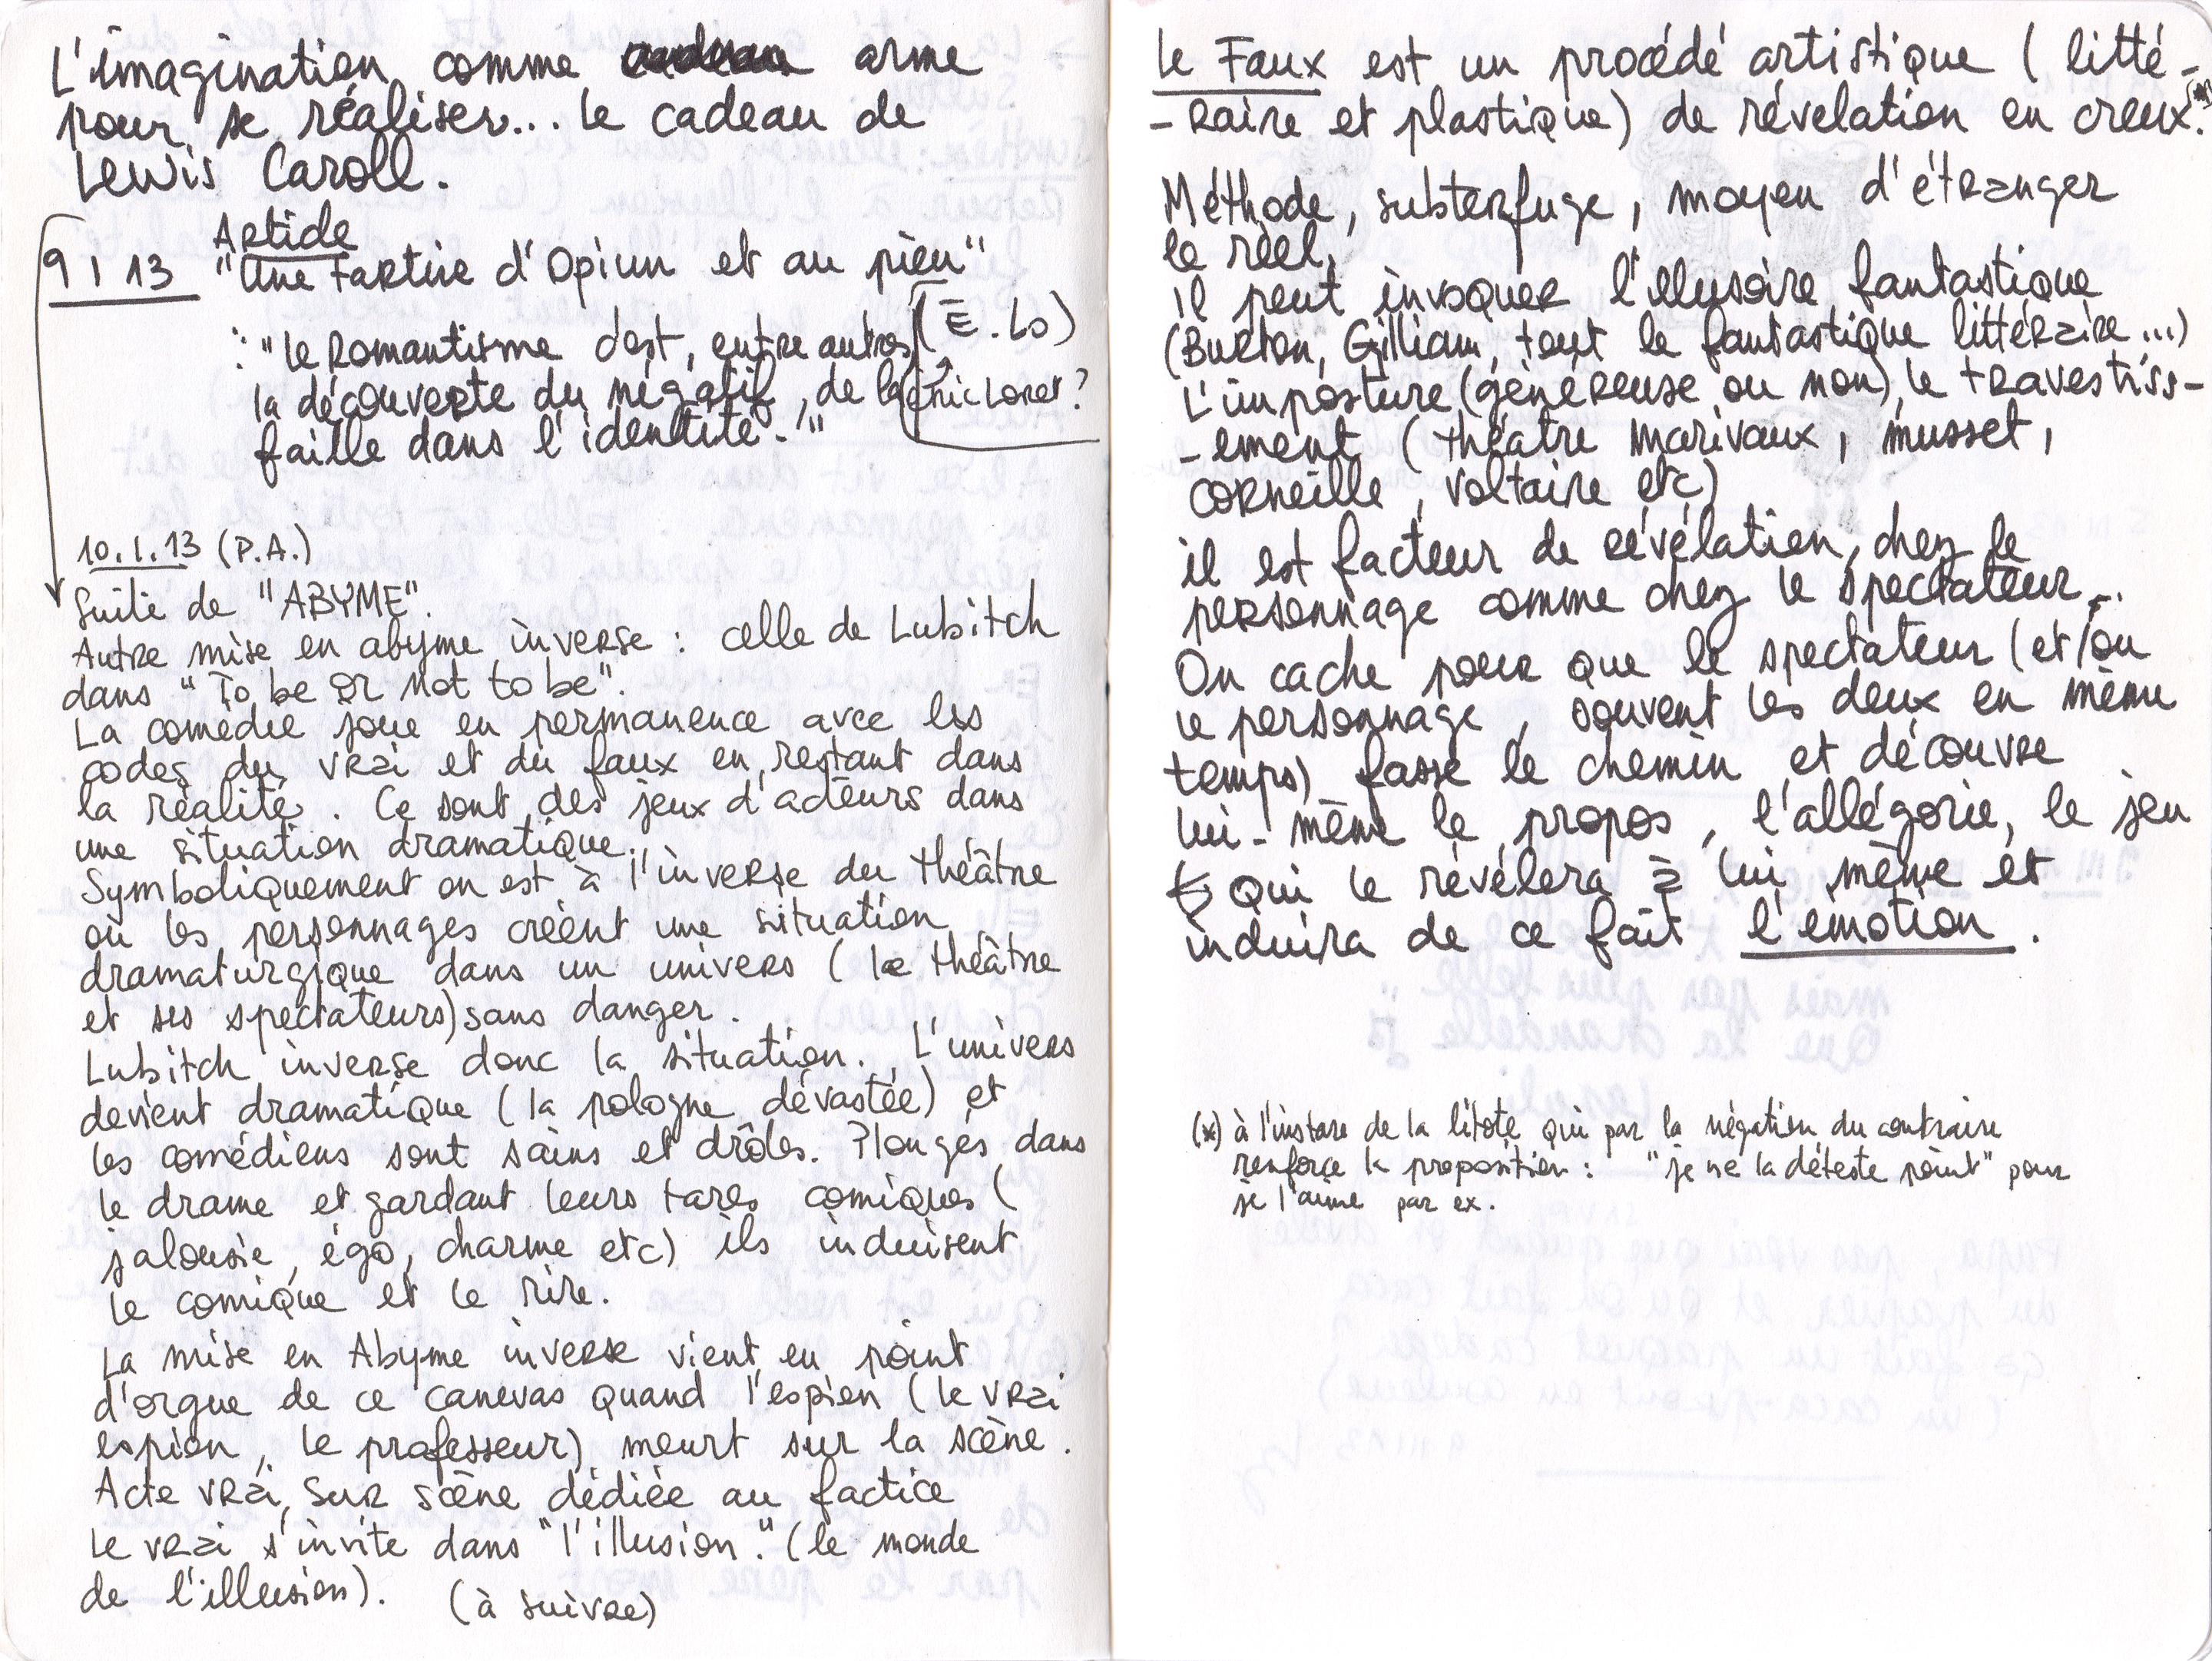 L'imagination comme arme
pour se réaliser... le cadeau de
Lewis Caroll.
Article
9 I 13 "Une tartine d'Opium et au pieu"
(E. Lo)
: "le Romantisme c'est, entre autres,
la découverte du négatif, de la
Eric Loret ?
faille dans l'identité."
10.1.13 (P.A.)
Suite de "ABYME".
Autre mise en abyme inverse : celle de Lubitch
dans "To be or not to be".
La comédie joue en permanence avec les
codes du vrai et du faux en restant dans
la réalité. Ce sont des jeux d'acteurs dans
une situation dramatique.
Symboliquement on est à l'inverse du théâtre
où les personnages créent une situation
dramaturgique dans un univers (le théâtre
et ses spectateurs) sans danger.
Lubitch inverse donc la situation. L'univers
devient dramatique (la pologne dévastée) et
les comédiens sont sains et drôles. Plongés dans
le drame et gardant leurs tares comiques (
jalousie, égo, charme etc) ils induisent
le comique et le rire.
La mise en Abyme inverse vient en point
d'orgue de ce canevas quand l'espien (le vrai
espion, le professeur) meurt sur la scène.
Acte vrai, sur scène dédiée au factice
le vrai s'invite dans "l'illusion." (le monde
de l'illusion). (à suivre)
Le Faux est un procédé artistique (litté-
-raire et plastique) de révelation en creux(*).
Méthode, subterfuge, moyen d'étranger
le réel,
il peut invoquer l'illusoire fantastique
(Burton, Gilliam, tout le fantastique littéraire...)
L'imposture (généreuse ou non), le travestiss-
-ement (théatre Marivaux, musset,
corneille, voltaire etc)
il est facteur de révélation, chez le
personnage comme chez le spectateur...
On cache pour que le spectateur (et/ou
le personnage, souvent les deux en même
temps) fasse le chemin et découvre
lui-même le propos, l'allégorie, le jeu
↳ qui le révélera à lui même et
induira de ce fait l'émotion.
(*) à l'instare de la litote qui par la négation du contraire
renforce la proposition : "je ne la déteste point" pour
je l'aime par ex.